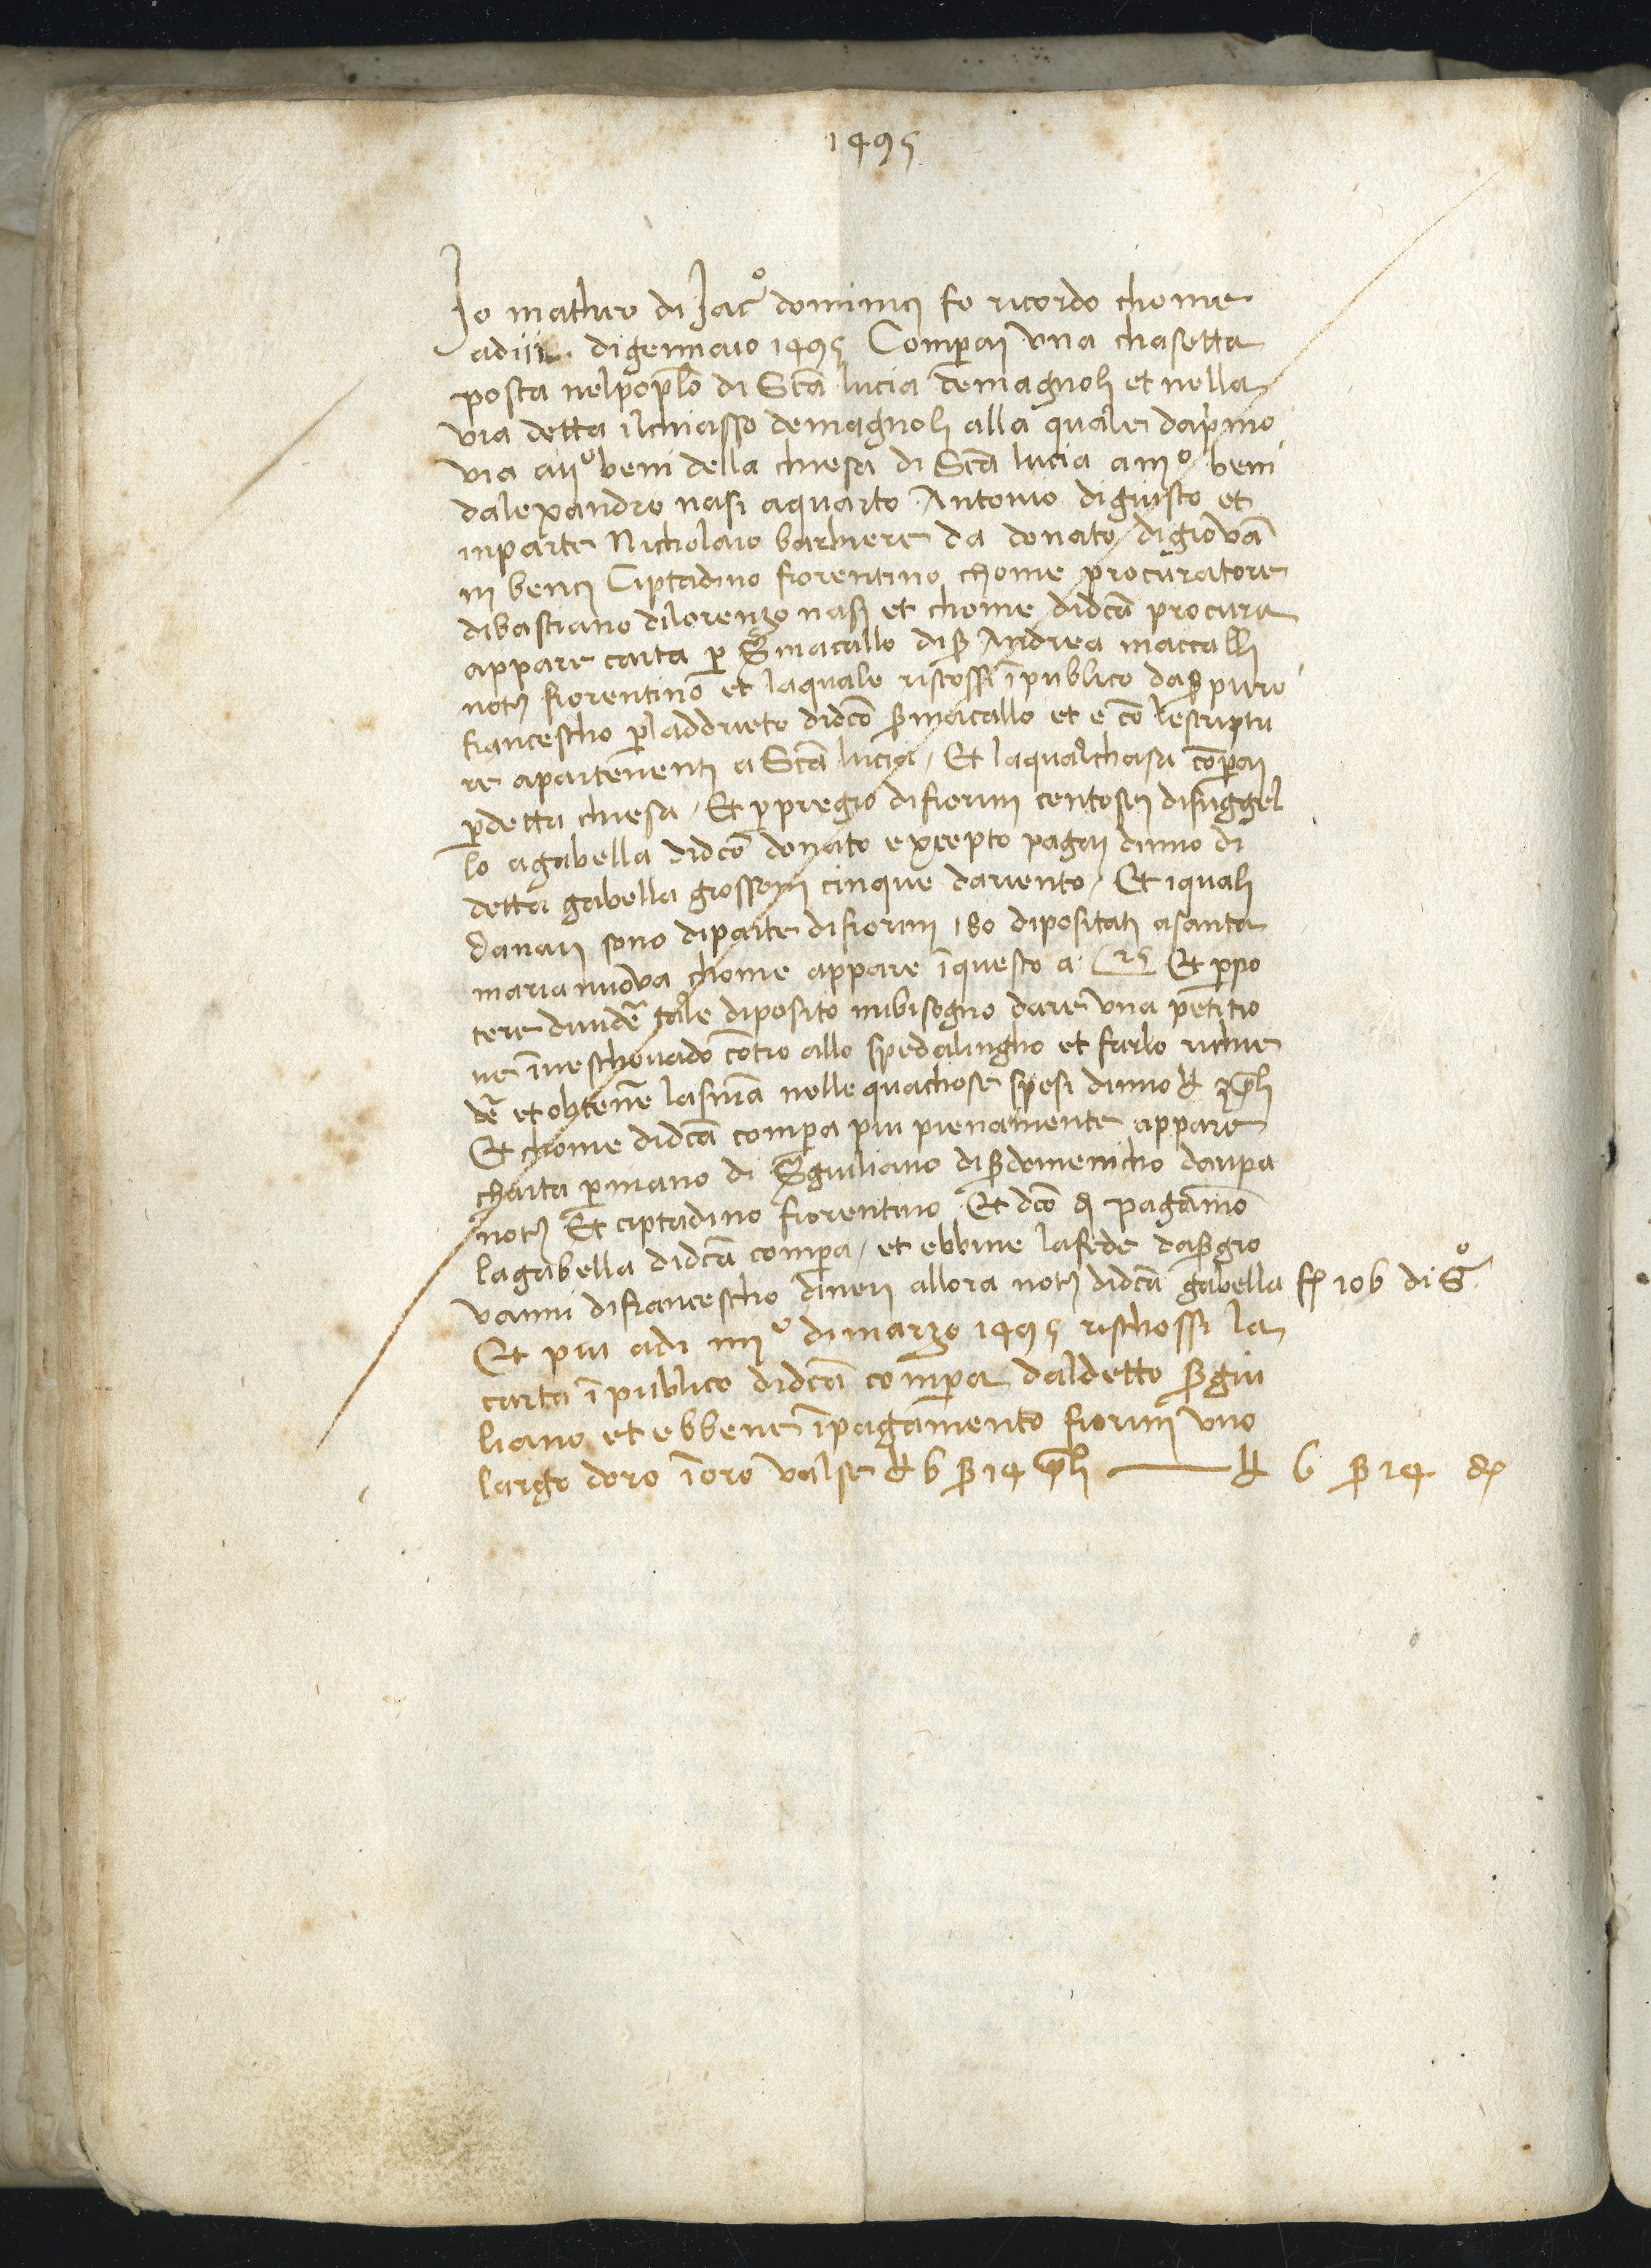 1495
Io matheo di Jac° dominici fo ricordo chome
adi iii. digennaio 1495 Comperai una chasetta
posta nelpoplō di Scā lucia demagnoli et nella
via detta ilchiasso demagnoli alla quale dap°mo
via aii° beni della chiesa di Scā lucia aiii° beni
dalexandro nasi aquarto Antonio digiusto et
inparte Nicholaio barbiere da donato digiovā
ni benci Ciptadino fiorentino chome procuratore
dibastiano dilorenzo nasi et chome didcā procura
appare carta p S macallo di s Andrea maccalli
not fiorentino et laquale riscossi ī publico da s piero
francescho pl addrieto didcō s macallo et e cō lescriptu
re apartenenti a Scā lucia / Et laqualchasa cōperai
pdetta chiesa / Et p pregio difiorini centosei disuggel
lo agabella didcō donato excepto pagai dimio di
detta gabella grossoni cinque dariento / Et iquali
danari sono diparte difiorini 180 dipositati asanta
maria nuova chome appare ī questo a c 25 Et p po
tere dividē tale diposito mibisogno dare una petitio
ne ī veschovado cōtro allo spedalingho et farlo richie
dē et obtenē lasnīa nelle quachose spesi dimio £ 2 pli
Et chome didcā compera piu pienamente appare
charta p mano di S giuliano di s domenicho daripa
not Et ciptadino fiorentino Et dcō di pagāmo
lagabella didcā compera / et ebbine lafede da s gio
vanni difrancescho dineri allora not didcā gabella f 106 di S°
Et piu adi iiii° dimarzo 1495 rischossi la
carta ī publico didcā compera daldetto s giu
liano et ebbene ī pagamento fiorini uno
largo doro ī oro valse £ 6 s 14 pli —— £ 6 s 14 d